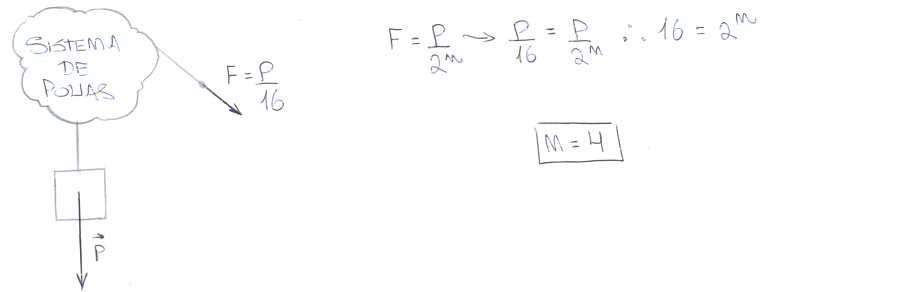 SISTEMA
DE
POLIAS
F = P/16
P⃗
F = P/2^m → P/16 = P/2^m ∴ 16 = 2^m
m = 4